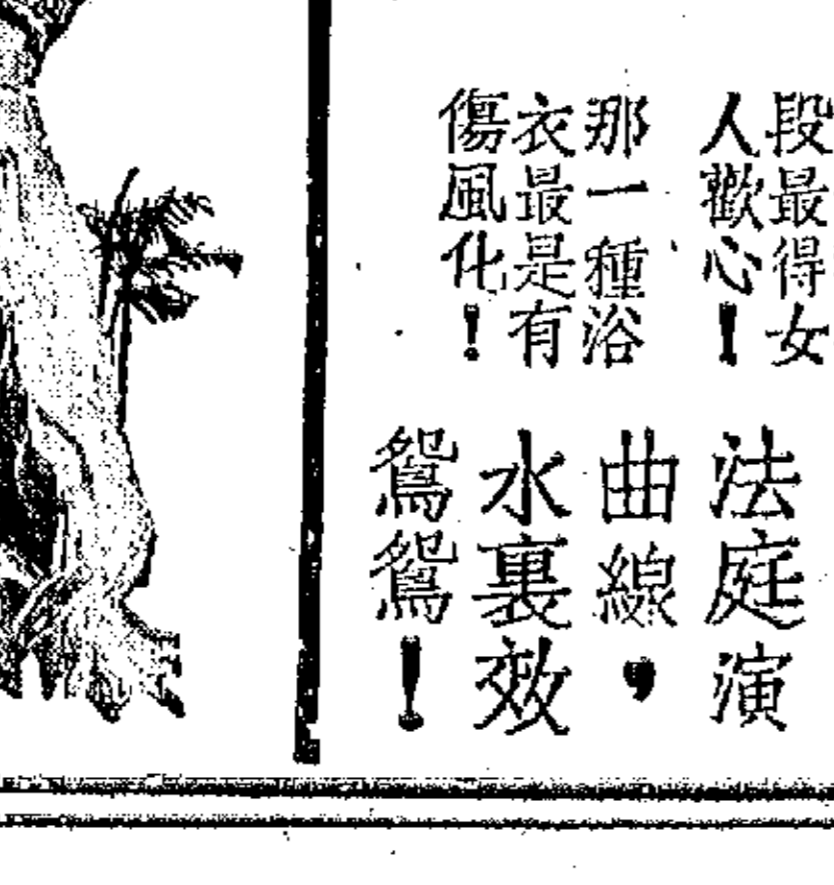 段最得女
人歡心！
那一種浴
衣最是有
傷風化！
法庭演
曲線，
水裏效
鴛鴛！